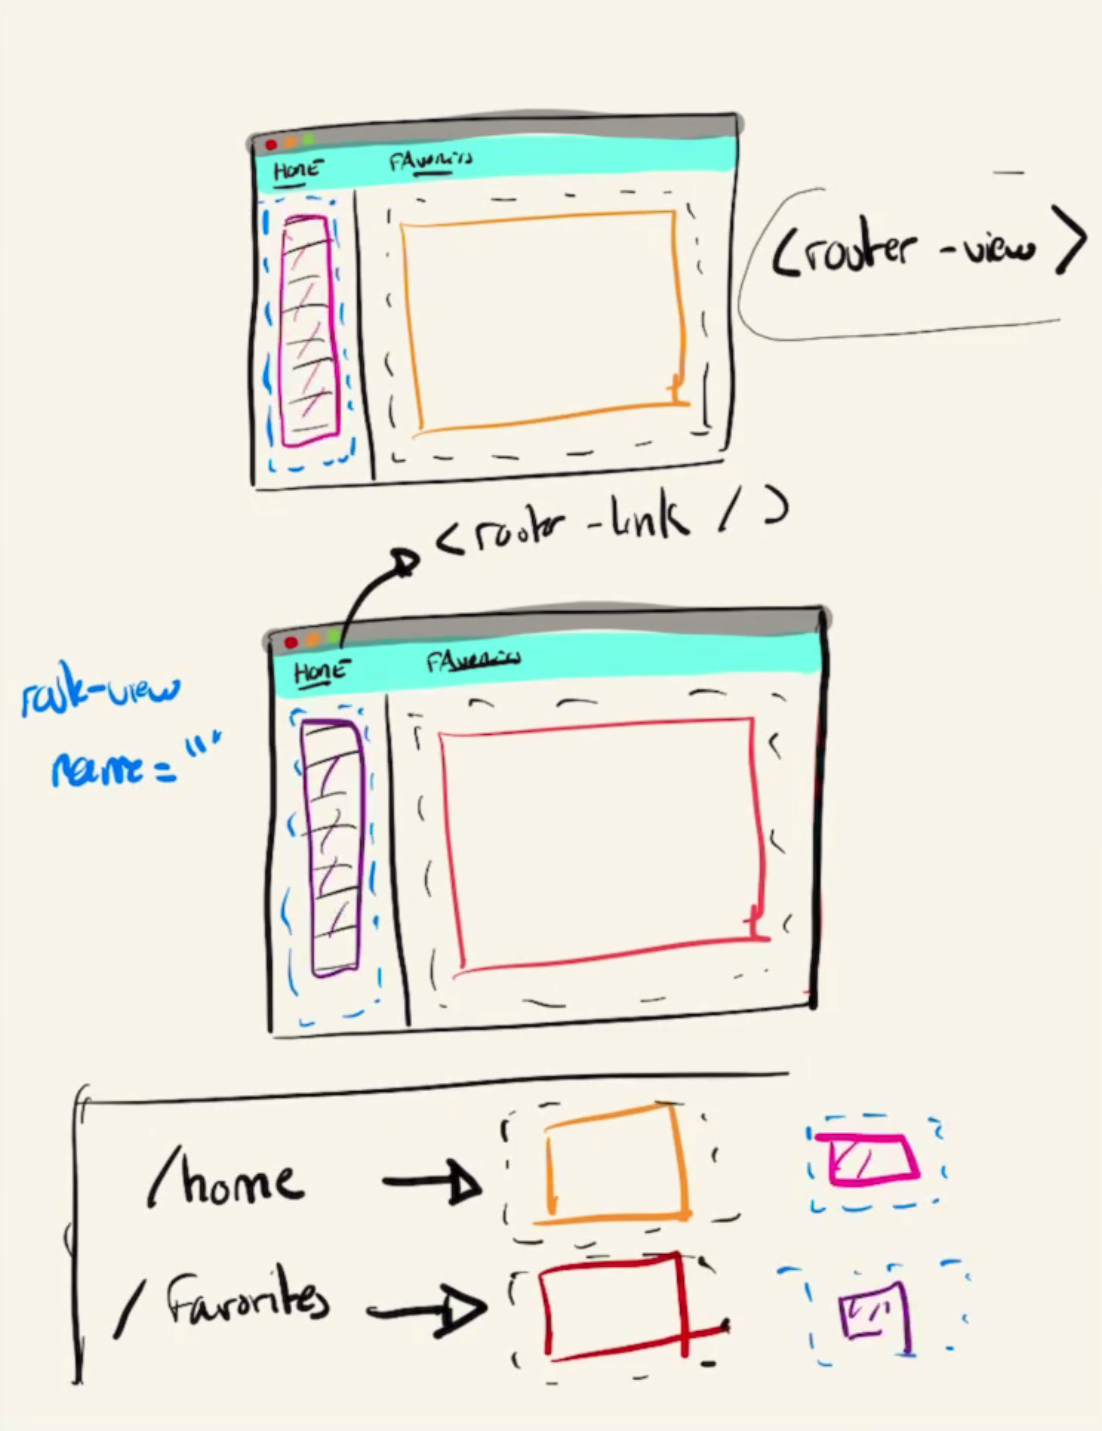 HOME
FAvorites
<router -view >
<router -link / >
HOME
FAvorites
name = ""
/home
/ Favorites